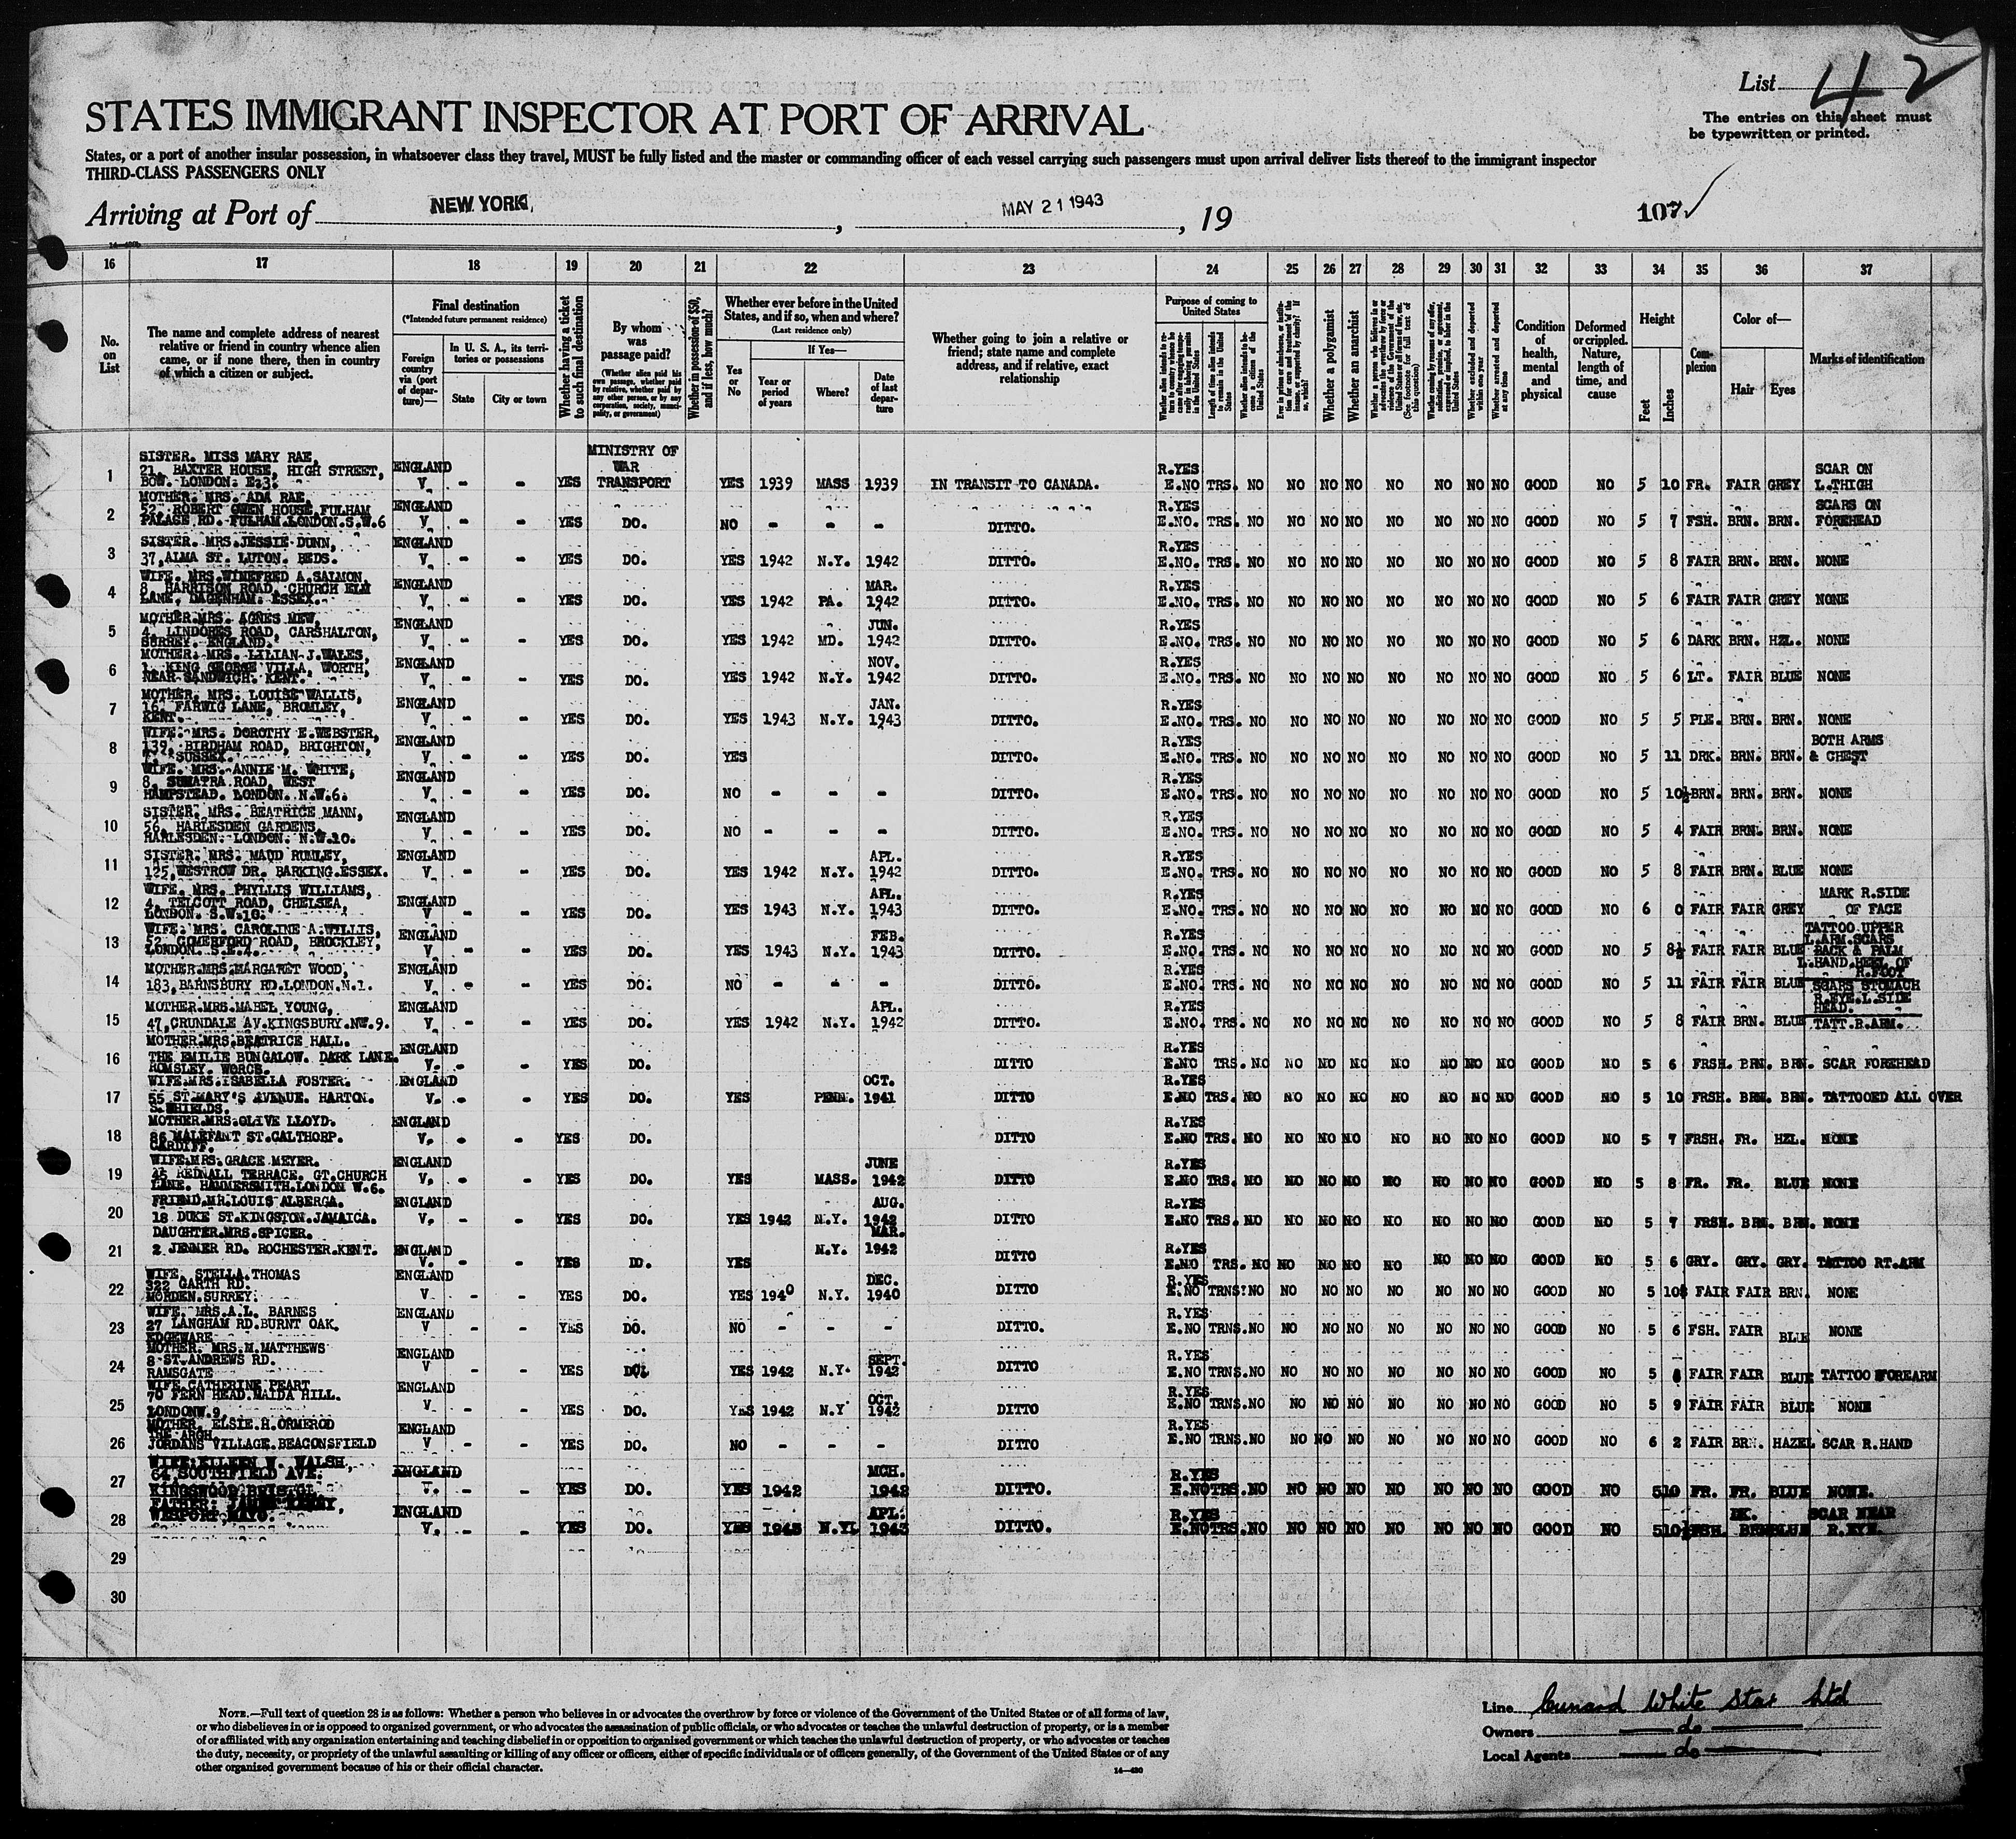 List 42
STATES IMMIGRANT INSPECTOR AT PORT OF ARRIVAL
The entries on this sheet must
be typewritten or printed.
States, or a port of another insular possession, in whatsoever class they travel, MUST be fully listed and the master or commanding officer of each vessel carrying such passengers must upon arrival deliver lists thereof to the immigrant inspector
THIRD-CLASS PASSENGERS ONLY
Arriving at Port of NEW YORK, MAY 21 1943, 19 107
16 17 18 19 20 21 22 23 24 25 26 27 28 29 30 31 32 33 34 35 36 37
No. on List
The name and complete address of nearest relative or friend in country whence alien came, or if none there, then in country of which a citizen or subject.
Final destination
(*Intended future permanent residence)
Foreign country via (port of departure)—
In U. S. A., its territories or possessions
State
City or town
Whether having a ticket to such final destination
By whom was passage paid?
(Whether alien paid his own passage, whether paid by relative, whether paid by any other person, or by any corporation, society, municipality, or government)
Whether in possession of $50, and if less, how much?
Whether ever before in the United States, and if so, when and where?
(Last residence only)
If Yes—
Yes or No
Year or period of years
Where?
Date of last departure
Whether going to join a relative or friend; state name and complete address, and if relative, exact relationship
Purpose of coming to United States
Length of time alien intends to remain in the United States
Whether alien intends to become a citizen of the United States
Whether a polygamist
Whether an anarchist
Whether excluded and deported within one year
Whether arrested and deported at any time
Condition of health, mental and physical
Deformed or crippled. Nature, length of time, and cause
Height
Feet
Inches
Complexion
Color of—
Hair
Eyes
Marks of identification
1 SISTER. MISS MARY RAE, 21, BAXTER HOUSE, HIGH STREET, BOW. LONDON. E.3. ENGLAND V - - YES MINISTRY OF WAR TRANSPORT YES 1939 MASS 1939 IN TRANSIT TO CANADA. R.YES E.NO TRS. NO NO NO NO NO NO NO NO GOOD NO 5 10 FR. FAIR GREY SCAR ON L.THIGH
2 MOTHER. MRS. ADA RAE, 52, ROBERT OWEN HOUSE, FULHAM PALACE RD. FULHAM.LONDON.S.W.6 ENGLAND V - - YES DO. NO - - - DITTO. R.YES E.NO. TRS. NO NO NO NO NO NO NO NO GOOD NO 5 7 FSH. BRN. BRN. SCARS ON FOREHEAD
3 SISTER. MRS.JESSIE DUNN, 37,ALMA ST. LUTON. BEDS. ENGLAND V - - YES DO. YES 1942 N.Y. 1942 DITTO. R.YES E.NO. TRS. NO NO NO NO NO NO NO NO GOOD NO 5 8 FAIR BRN. BRN. NONE
4 WIFE. MRS.WINEFRED A.SALMON, 8, HARRISON ROAD, CHURCH ELM LANE, DAGENHAM. ESSEX. ENGLAND V - - YES DO. YES 1942 PA. MAR. 1942 DITTO. R.YES E.NO. TRS. NO NO NO NO NO NO NO NO GOOD NO 5 6 FAIR FAIR GREY NONE
5 MOTHER.MRS. AGNES MEW, 4, LINDORES ROAD, CARSHALTON, SURREY. ENGLAND. ENGLAND V - - YES DO. YES 1942 MD. JUN. 1942 DITTO. R.YES E.NO. TRS. NO NO NO NO NO NO NO NO GOOD NO 5 6 DARK BRN. HZL. NONE
6 MOTHER. MRS. LILIAN J.WALES, 1, KING GEORGE VILLA, WORTH, NEAR SANDWICH. KENT. ENGLAND V - - YES DO. YES 1942 N.Y. NOV. 1942 DITTO. R.YES E.NO. TRS. NO NO NO NO NO NO NO NO GOOD NO 5 6 LT. FAIR BLUE NONE
7 MOTHER. MRS. LOUISE WALLIS, 16, FARWIG LANE, BROMLEY, KENT. ENGLAND V - - YES DO. YES 1943 N.Y. JAN. 1943 DITTO. R.YES E.NO. TRS. NO NO NO NO NO NO NO NO GOOD NO 5 5 PLE. BRN. BRN. NONE
8 WIFE. MRS. DOROTHY E.WEBSTER, 139, BIRDHAM ROAD, BRIGHTON, 7, SUSSEX. ENGLAND V - - YES DO. YES DITTO. R.YES E.NO. TRS. NO NO NO NO NO NO NO NO GOOD NO 5 11 DRK. BRN. BRN. BOTH ARMS & CHEST
9 WIFE. MRS. ANNIE M. WHITE, 8, SUMATRA ROAD, WEST HAMPSTEAD. LONDON. N.W.6. ENGLAND V - - YES DO. NO - - - DITTO. R.YES E.NO. TRS. NO NO NO NO NO NO NO NO GOOD NO 5 10½ BRN. BRN. BRN. NONE
10 SISTER. MRS. BEATRICE MANN, 56, HARLESDEN GARDENS, HARLESDEN. LONDON. N.W.10. ENGLAND V - - YES DO. NO - - - DITTO. R.YES E.NO. TRS. NO NO NO NO NO NO NO NO GOOD NO 5 4 FAIR BRN. BRN. NONE
11 SISTER. MRS. MAUD RUMLEY, 125,WESTROW DR. BARKING.ESSEX. ENGLAND V - - YES DO. YES 1942 N.Y. APL. 1942 DITTO. R.YES E.NO. TRS. NO NO NO NO NO NO NO NO GOOD NO 5 8 FAIR BRN. BLUE NONE
12 WIFE. MRS. PHYLLIS WILLIAMS, 4, TELCOTT ROAD, CHELSEA, LONDON. S.W.10. ENGLAND V - - YES DO. YES 1943 N.Y. APL. 1943 DITTO. R.YES E.NO. TRS. NO NO NO NO NO NO NO NO GOOD NO 6 0 FAIR FAIR GREY MARK R.SIDE OF FACE
13 WIFE. MRS. CAROLINE A.WILLIS, 52, COMERFORD ROAD, BROCKLEY, LONDON. S.E.4. ENGLAND V - - YES DO. YES 1943 N.Y. FEB. 1943 DITTO. R.YES E.NO. TRS. NO NO NO NO NO NO NO NO GOOD NO 5 8½ FAIR FAIR BLUE TATTOO UPPER L.ARM.SCARS BACK & PALM L.HAND.HEEL OF R.FOOT
14 MOTHER.MRS.MARGARET WOOD, 183,BARNSBURY RD.LONDON.N.1. ENGLAND V - - YES DO. NO - - - DITTO. R.YES E.NO. TRS. NO NO NO NO NO NO NO NO GOOD NO 5 11 FAIR FAIR BLUE SCARS STOMACH R.EYE.L.SIDE HEAD.
15 MOTHER.MRS.MABEL YOUNG, 47,CRUNDALE AV.KINGSBURY.NW.9. ENGLAND V - - YES DO. YES 1942 N.Y. APL. 1942 DITTO. R.YES E.NO. TRS. NO NO NO NO NO NO NO NO GOOD NO 5 8 FAIR BRN. BLUE TATT.R.ARM.
16 MOTHER.MRS.BEATRICE HALL. THE EMILIE BUNGALOW. DARK LANE. ROMSLEY. WORCS. ENGLAND V. - - YES DO. DITTO R.YES E.NO TRS. NO NO NO NO NO NO NO NO GOOD NO 5 6 FRSH. BRN. BRN. SCAR FOREHEAD
17 WIFE.MRS.ISABELLA FOSTER. 55 ST.MARY'S AVENUE. HARTON. S.SHIELDS. ENGLAND V. - - YES DO. YES PENN. OCT. 1941 DITTO R.YES E.NO TRS. NO NO NO NO NO NO NO NO GOOD NO 5 10 FRSH. BRN. BRN. TATTOOED ALL OVER
18 MOTHER.MRS.OLIVE LLOYD. 86 MALEFANT ST.CALTHORP. CARDIFF. ENGLAND V. - - YES DO. DITTO R.YES E.NO TRS. NO NO NO NO NO NO NO NO GOOD NO 5 7 FRSH. FR. HZL. NONE
19 WIFE.MRS.GRACE MEYER. REDNALL TERRACE. GT.CHURCH LANE. HAMMERSMITH.LONDON W.6. ENGLAND V. - - YES DO. YES MASS. JUNE 1942 DITTO R.YES E.NO TRS. NO NO NO NO NO NO NO NO GOOD NO 5 8 FR. FR. BLUE NONE
20 FRIEND.MR.LOUIS ALBERGA. 18 DUKE ST.KINGSTON.JAMAICA. ENGLAND V. - - YES DO. YES 1942 N.Y. AUG. 1942 DITTO R.YES E.NO TRS. NO NO NO NO NO NO NO NO GOOD NO 5 7 FRSH. BRN. BRN. NONE
21 DAUGHTER.MRS.SPICER. 2 JENNER RD. ROCHESTER.KENT. ENGLAND V. - - YES DO. YES N.Y. MAR. 1942 DITTO R.YES E.NO TRS. NO NO NO NO NO NO NO NO GOOD NO 5 6 GRY. GRY. GRY. TATTOO RT.ARM
22 WIFE. STELLA.THOMAS 322 GARTH RD. MORDEN.SURREY. ENGLAND V - - YES DO. YES 1940 N.Y. DEC. 1940 DITTO R.YES E.NO TRNS. NO NO NO NO NO NO NO NO GOOD NO 5 10 FAIR FAIR BRN. NONE
23 WIFE. MRS.A.L. BARNES 27 LANGHAM RD.BURNT OAK. EDGEWARE ENGLAND V - - YES DO. NO - - - DITTO. R.YES E.NO TRNS. NO NO NO NO NO NO NO NO GOOD NO 5 6 FSH. FAIR BLUE NONE
24 MOTHER. MRS.M.MATTHEWS 8 ST.ANDREWS RD. RAMSGATE ENGLAND V - - YES DO. YES 1942 N.Y. SEPT. 1942 DITTO R.YES E.NO TRNS. NO NO NO NO NO NO NO NO GOOD NO 5 FAIR FAIR BLUE TATTOO FOREARM
25 WIFE.CATHERINE PEART 70 FERN HEAD.MAIDA HILL. LONDONW.9. ENGLAND V - - YES DO. YES 1942 N.Y OCT. 1942 DITTO R.YES E.NO TRNS. NO NO NO NO NO NO NO NO GOOD NO 5 9 FAIR FAIR BLUE NONE
26 MOTHER. ELSIE.H.ORMEROD THE ARCH. JORDANS VILLAGE.BEACONSFIELD ENGLAND V - - YES DO. NO - - - DITTO R.YES E.NO TRNS. NO NO NO NO NO NO NO NO GOOD NO 6 2 FAIR BRN. HAZEL SCAR R.HAND
27 WIFE:EILEEN W. WALSH, 64,SOUTHFIELD AVE. KINGSWOOD BRISTOL ENGLAND V. - - YES DO. YES 1942 MCH. 1942 DITTO. R.YES E.NO TRS. NO NO NO NO NO NO NO NO GOOD NO 5 10 FR. FR. BLUE NONE.
28 FATHER: WESPORT,MAYO. ENGLAND V. - - YES DO. YES 1943 N.Y. APL. 1943 DITTO. R.YES E.NO TRS. NO NO NO NO NO NO NO NO GOOD NO 5 10½ FSH. DK. BRN BLUE SCAR NEAR R.EYE.
29
30
NOTE.—Full text of question 28 is as follows: Whether a person who believes in or advocates the overthrow by force or violence of the Government of the United States or of all forms of law,
or who disbelieves in or is opposed to organized government, or who advocates the assassination of public officials, or who advocates or teaches the unlawful destruction of property, or is a member
of or affiliated with any organization entertaining and teaching disbelief in or opposition to organized government or which teaches the unlawful destruction of property, or who advocates or teaches
the duty, necessity, or propriety of the unlawful assaulting or killing of any officer or officers, either of specific individuals or of officers generally, of the Government of the United States or of any
other organized government because of his or their official character.
14—480
Line Cunard White Star Ltd
Owners — do —
Local Agents — do —